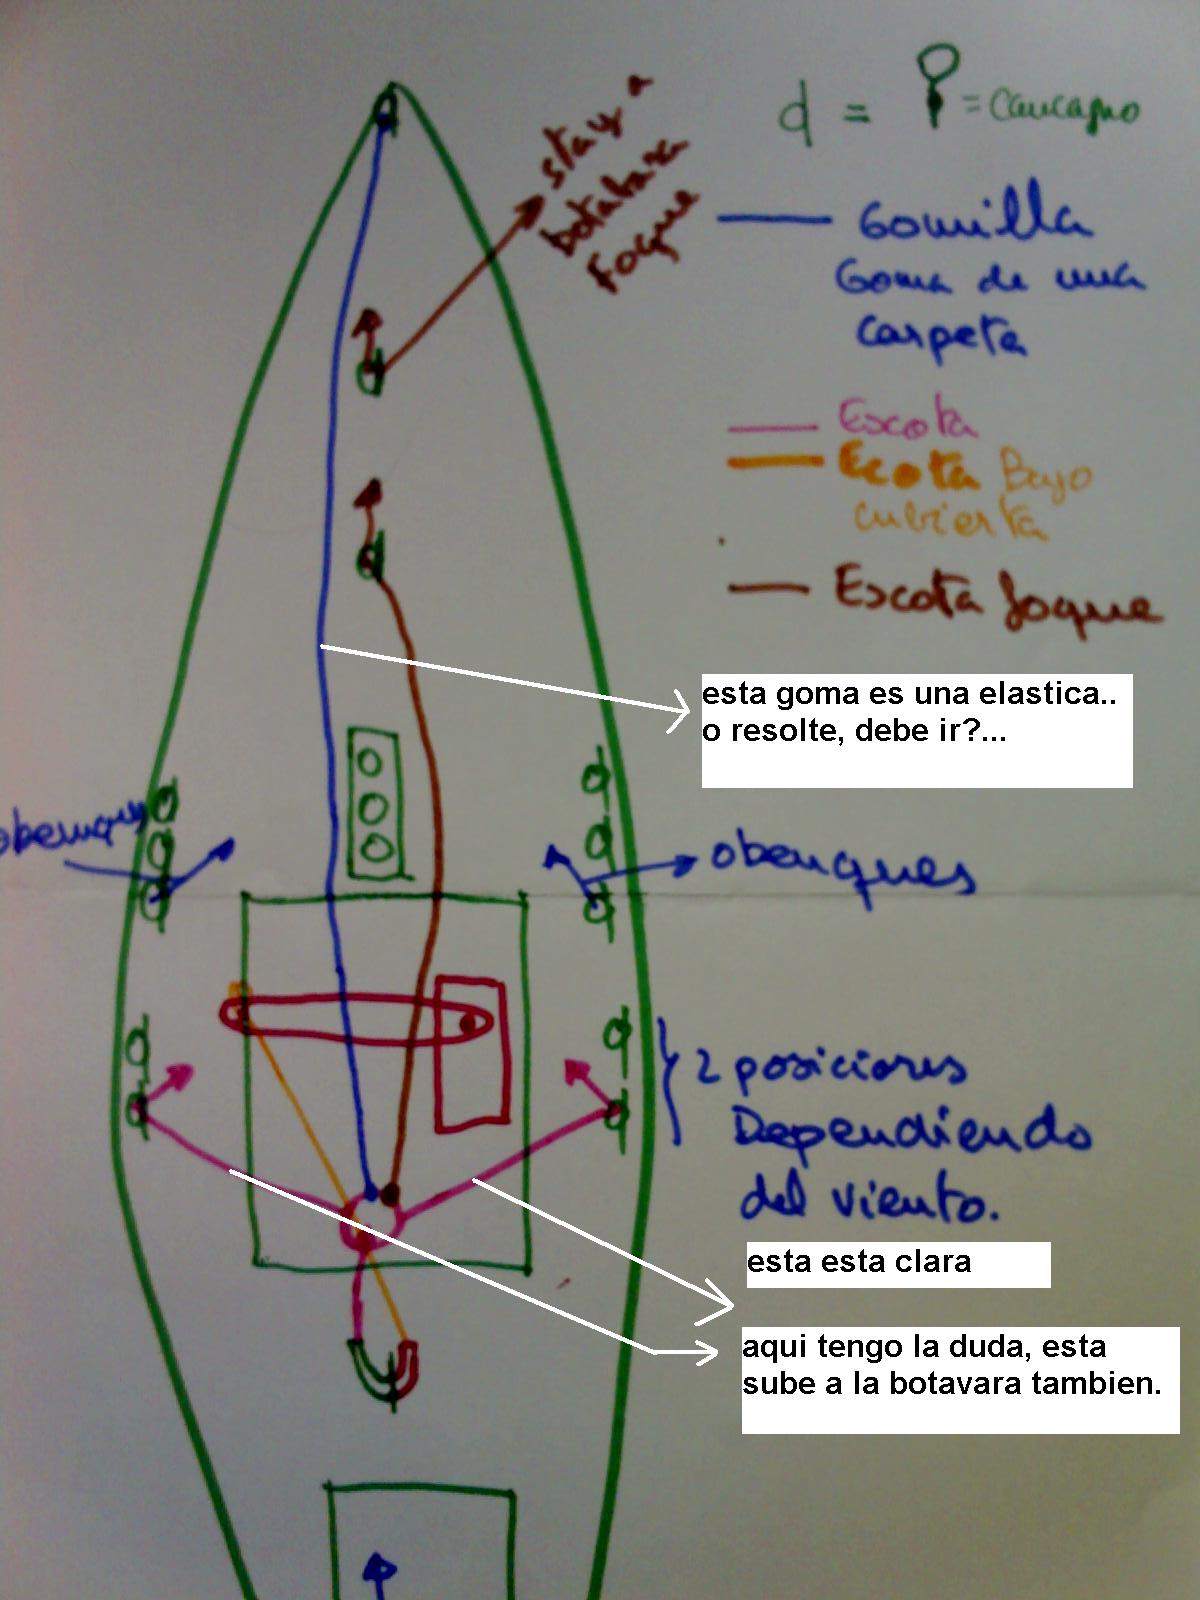 d = = Cancamo
stay a
botabara
foque
Gomilla
Goma de una
carpeta
Escota
Ecota Bajo
cubierta
Escota foque
esta goma es una elastica..
o resolte, debe ir?...
obenques
obenques
2 posiciones
Dependiendo
del viento.
esta esta clara
aqui tengo la duda, esta
sube a la botavara tambien.